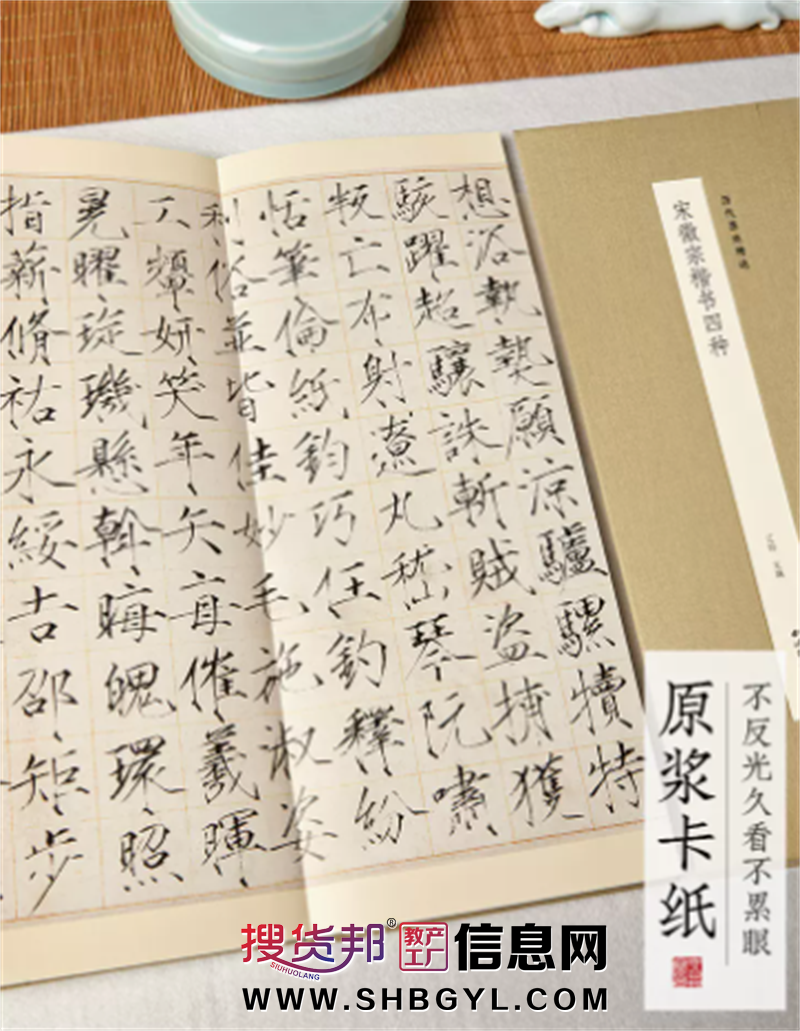 想浴執熱願涼驢騾犢特
駭躍超驤誅斬賊盜捕獲
叛亡布射遼丸嵇琴阮嘯
恬筆倫紙鈞巧任釣釋紛
利俗並皆佳妙毛施淑姿
工顰妍笑年矢每催羲暉
晃曜琁璣懸斡晦魄環照
指薪脩祜永綏吉邵矩步
宋徽宗楷书四种
不反光久看不累眼
原浆卡纸
搜货邦® 教产工厂 信息网
SIUHUOLANG
WWW.SHBGYL.COM